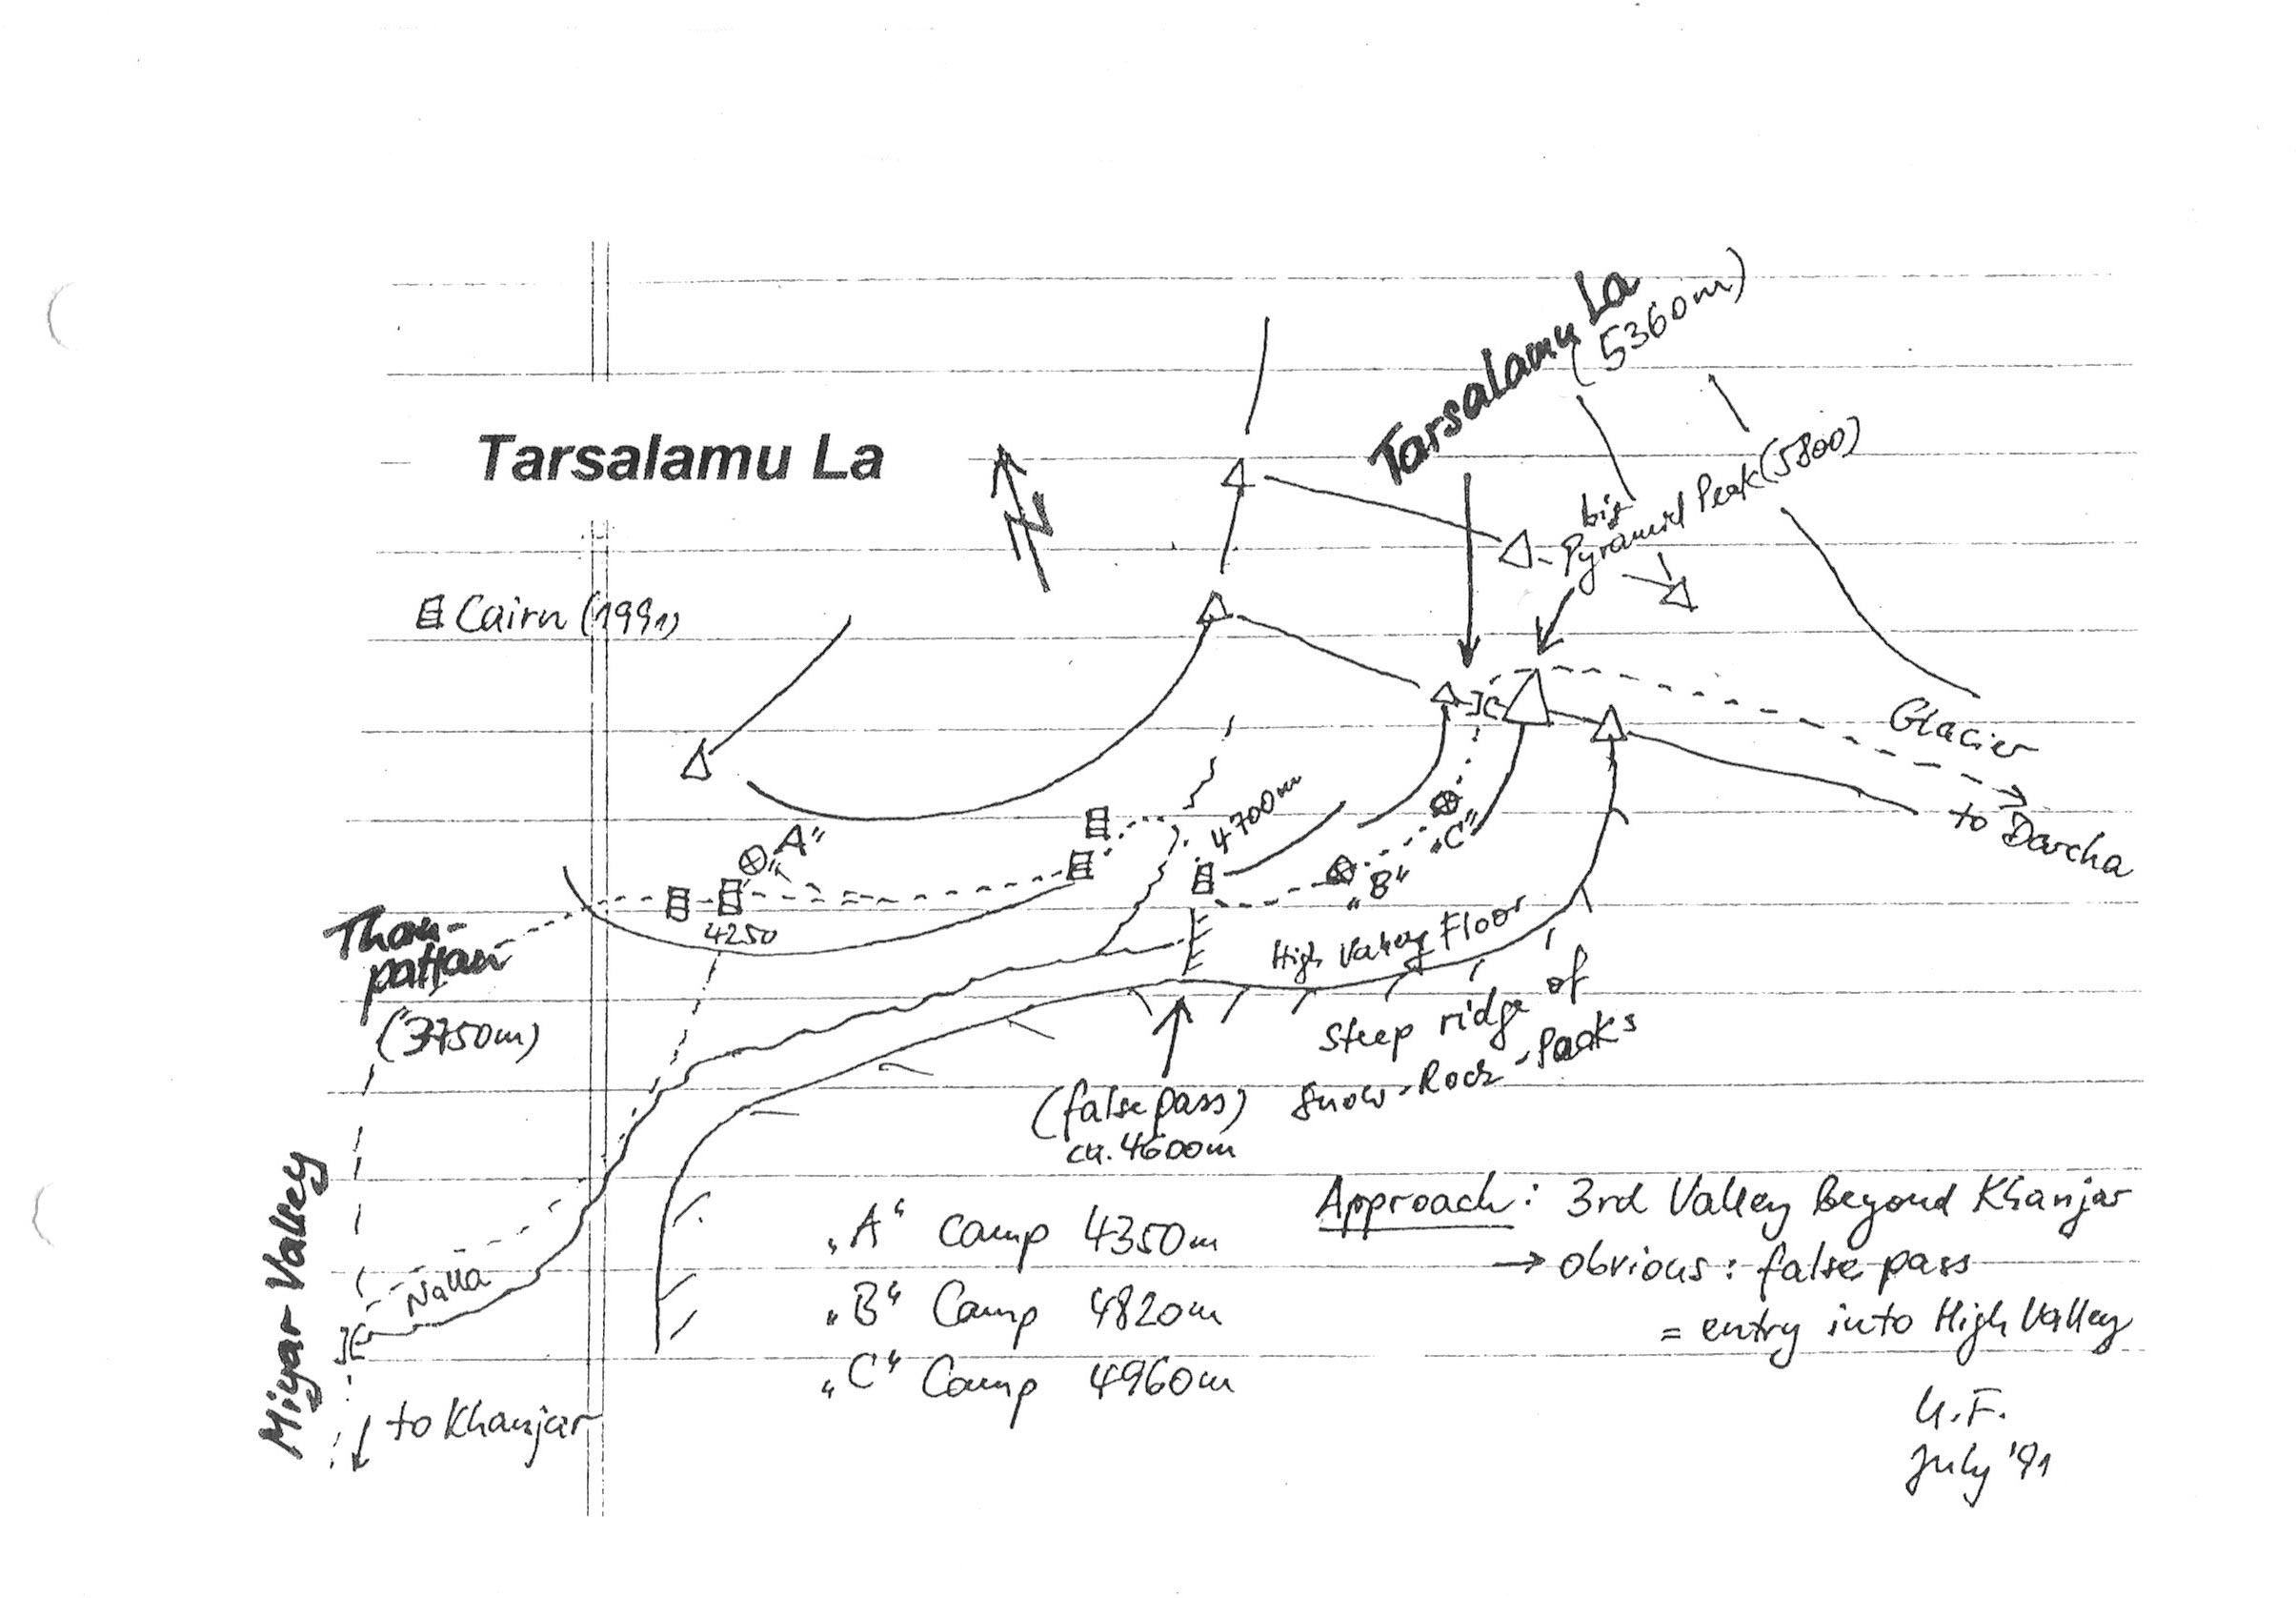 Tarsalamu La
(5360m)
Tarsalamu La
N
big
Pyramid Peak (5800)
Cairn (1991)
Glacier
to Darcha
4700m
"A"
"C"
"B"
4250
Tham-
pattan
(3750m)
High Valley Floor
Steep ridge of
Snow-Rock-Peaks
(false pass)
ca. 4600m
Miyar Valley
Nalla
to Khanjar
„A“ Camp 4350m
„B“ Camp 4820m
„C“ Camp 4960m
Approach: 3rd Valley beyond Khanjar
→ obvious: false pass
= entry into High Valley
U.F.
July '91